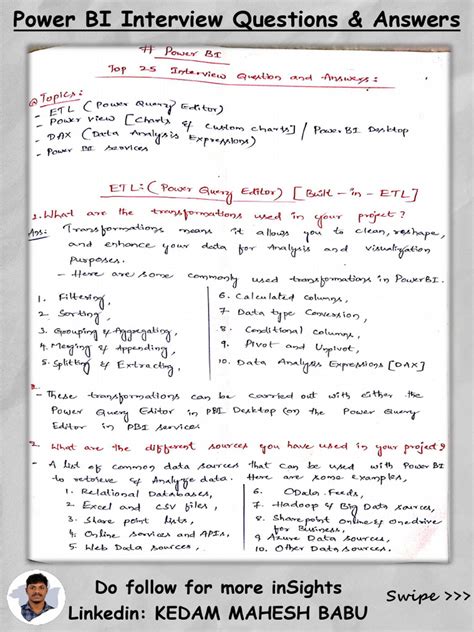 Power BI Interview Questions & Answers
# Power BI
Top 25 Interview Question and Answers:
@ Topics:
- ETL (Power Query Editor)
- Power View [Charts & Custom Charts] / Power BI Desktop
- DAX (Data Analysis Expressions)
- Power BI Services
ETL: (Power Query Editor) [Built-in-ETL]
1. What are the transformations used in your project?
Ans: Transformations means it allows you to clean, reshape,
and enhance your data for Analysis and visualization
purposes.
- Here are some commonly used transformations in Power BI.
1. Filtering,
2. Sorting,
3. Grouping & Aggregating,
4. Merging & Appending,
5. Splitting & Extracting,
6. Calculated columns,
7. Data type Conversion,
8. Conditional columns,
9. Pivot and Unpivot,
10. Data Analysis Expressions [DAX]
- These transformations can be carried out with either the
Power Query Editor in PBI Desktop (or the Power Query
Editor in PBI services
2. What are the different sources you have used in your project?
- A list of common data sources that can be used with Power BI
to retrieve & Analyze data. Here are some examples,
1. Relational Databases,
2. Excel and CSV files,
3. Share point lists,
4. Online services and APIs,
5. Web Data sources,
6. OData Feeds,
7. Hadoop & Big Data sources,
8. Sharepoint Online & Onedrive
for Business,
9. Azure Data sources,
10. Other Data sources.
Do follow for more inSights
Linkedin: KEDAM MAHESH BABU
Swipe >>>